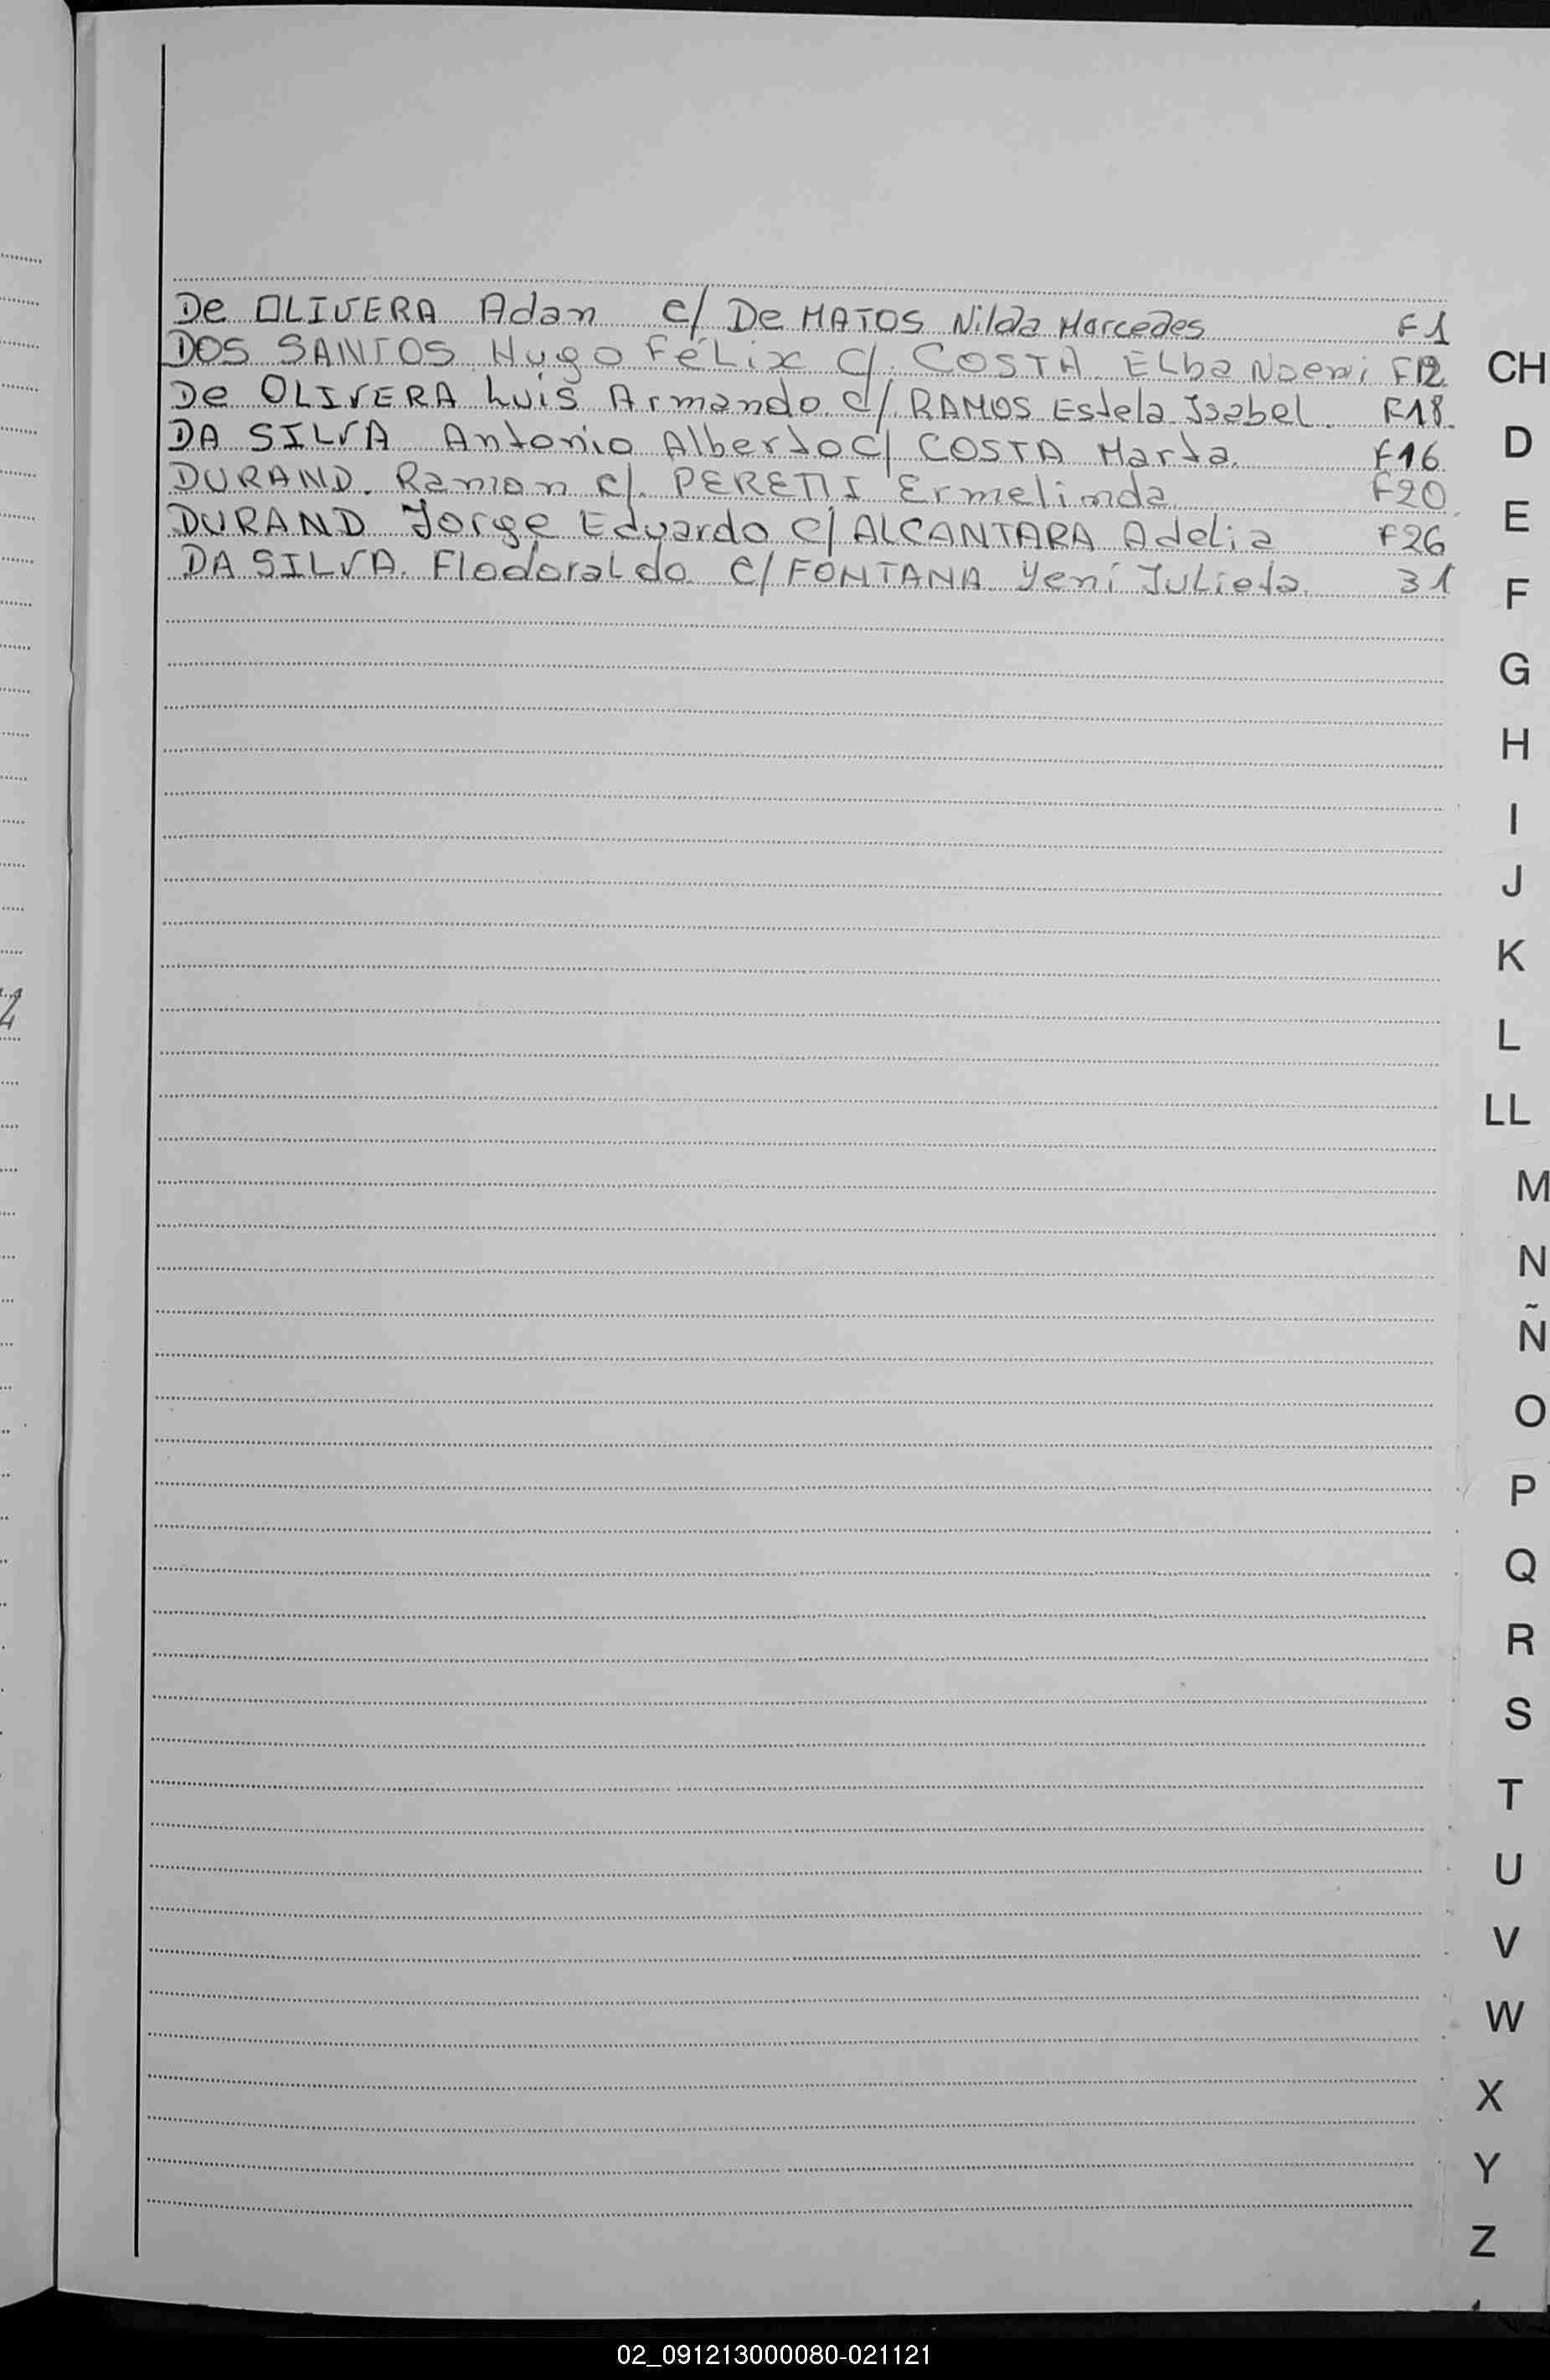 De OLIVERA Adan c/ De MATOS Nilda Mercedes F1
DOS SANTOS Hugo FéLix c/. COSTA ELba Noemi F12
De OLIVERA Luis Armando c/. RAMOS Estela Isabel. F18.
DA SILVA Antonio Alberto c/ COSTA Marta. F16
DURAND. Ramon c/. PERETTI Ermelinda F20
DURAND Jorge Eduardo c/ ALCANTARA Adelia F26
DA SILVA. Flodoraldo c/ FONTANA Yeni JULieta. 31
CH
D
E
F
G
H
I
J
K
L
LL
M
N
Ñ
O
P
Q
R
S
T
U
V
W
X
Y
Z
02_091213000080-021121